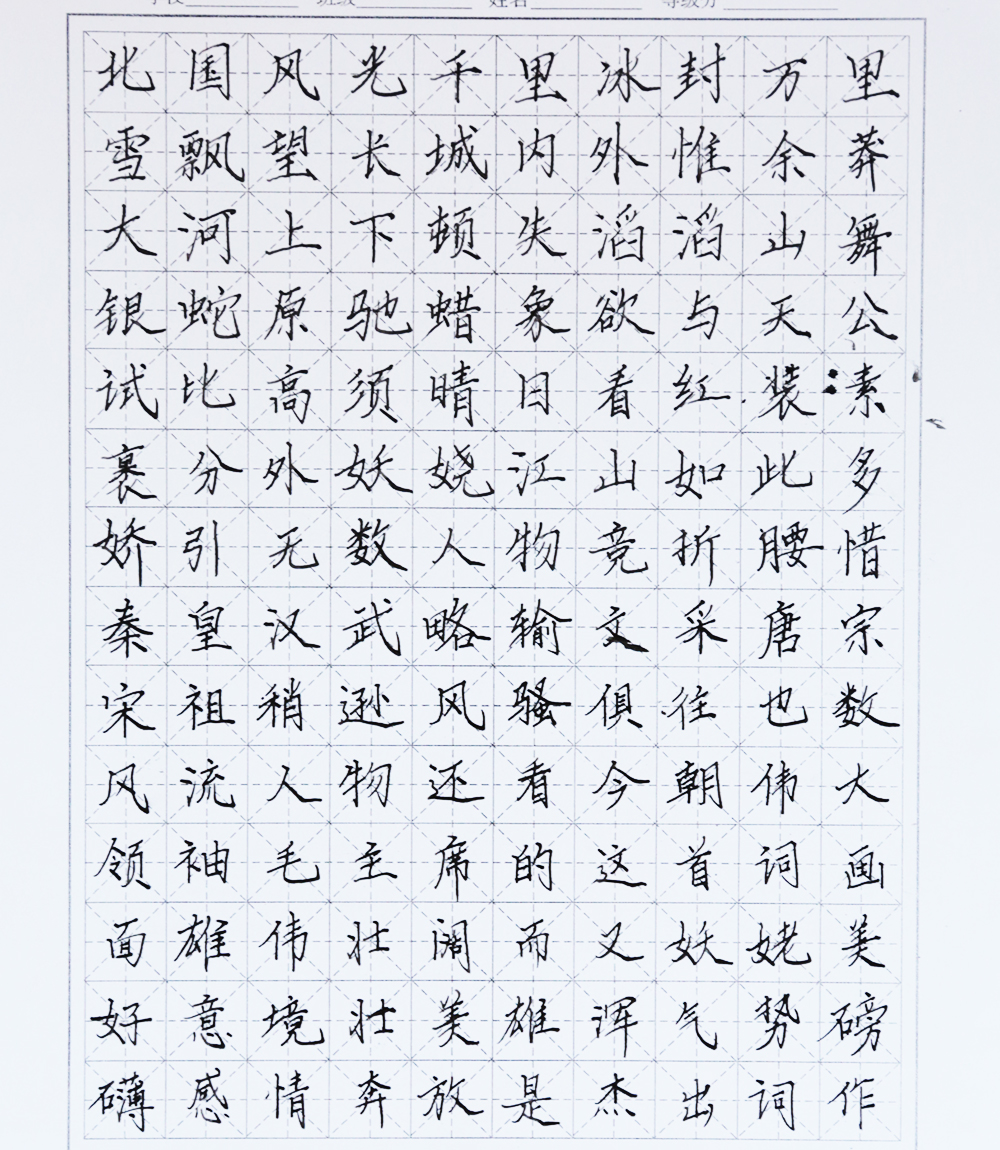 学校 班级 姓名 等级分
北国风光千里冰封万里
雪飘望长城内外惟余莽
大河上下顿失滔滔山舞
银蛇原驰蜡象欲与天公
试比高须晴日看红装素
裹分外妖娆江山如此多
娇引无数人物竞折腰惜
秦皇汉武略输文采唐宗
宋祖稍逊风骚俱往也数
风流人物还看今朝伟大
领袖毛主席的这首词画
面雄伟壮阔而又妖姥美
好意境壮美雄浑气势磅
礴感情奔放是杰出词作